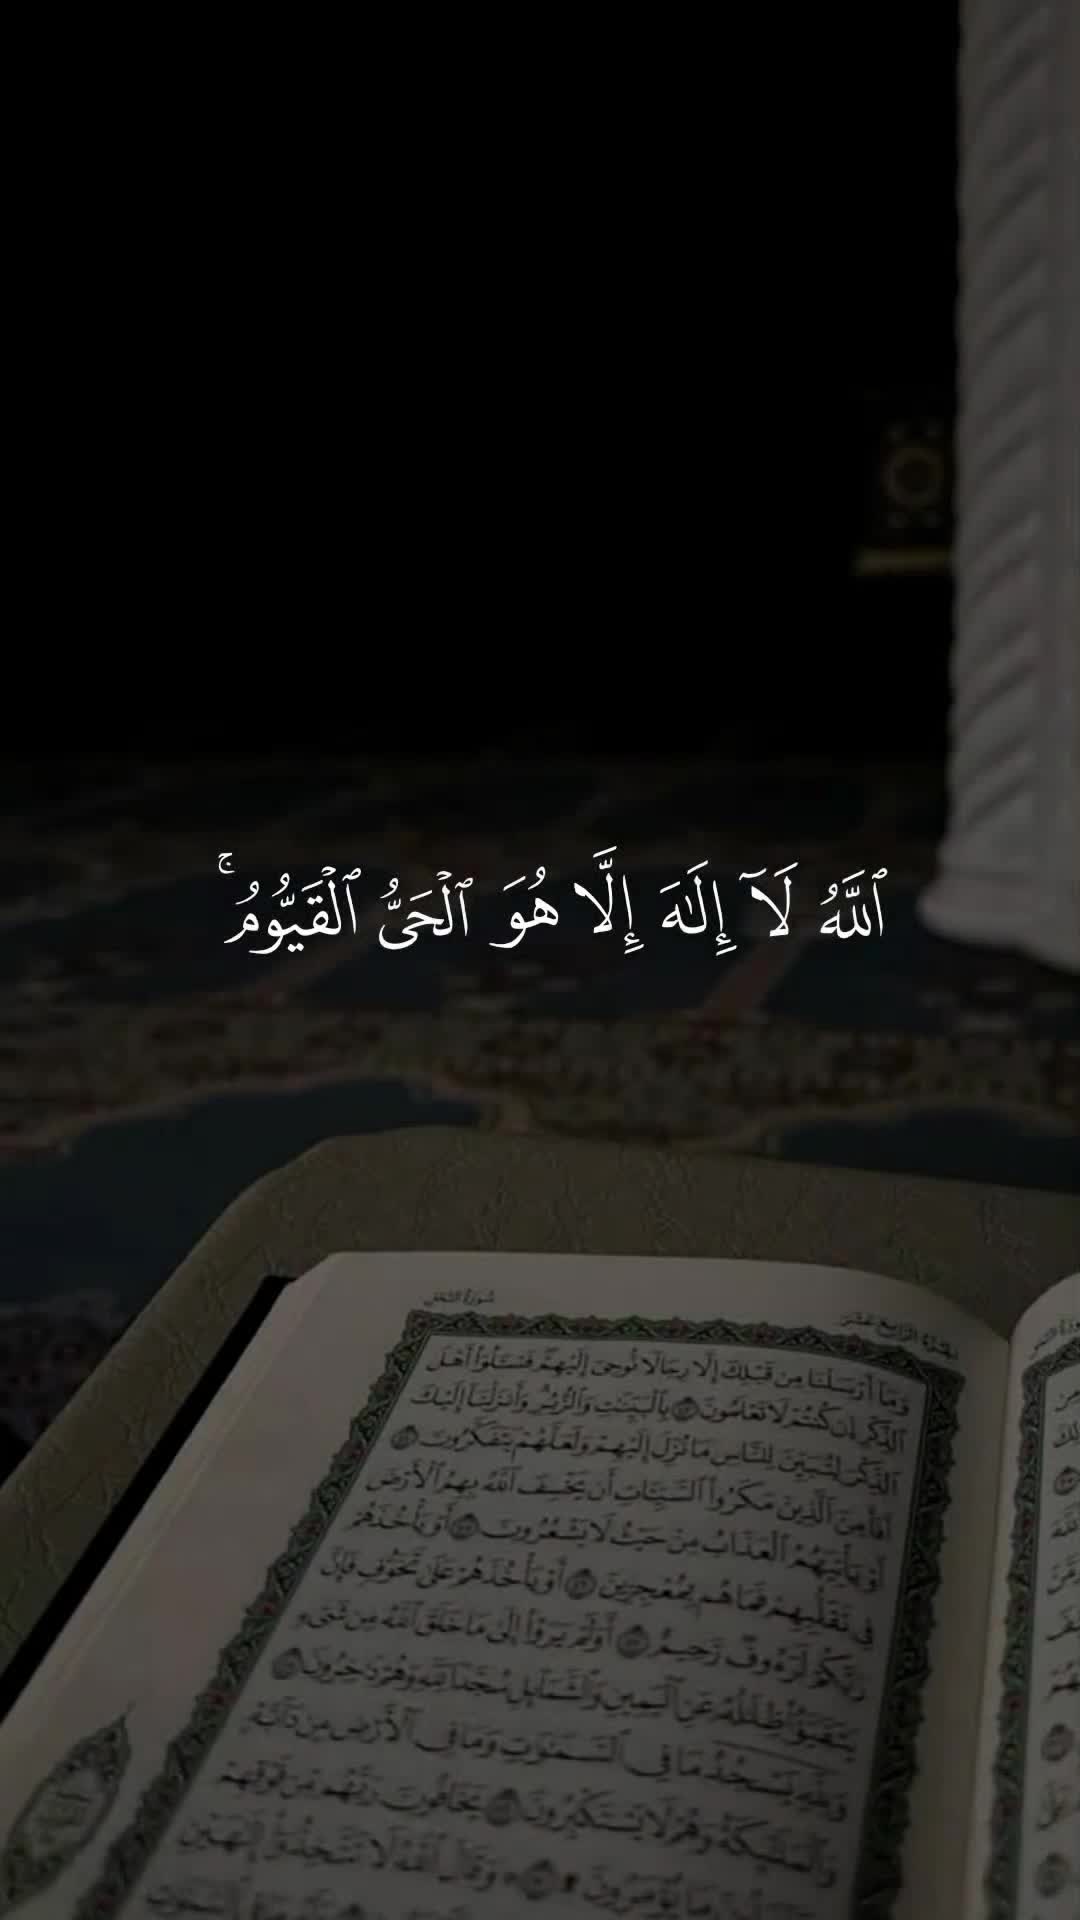 ٱللَّهُ لَآ إِلَـٰهَ إِلَّا هُوَ ٱلْحَىُّ ٱلْقَيُّومُ ۚ
سُورَةُ النَّحْلِ
الجُزْءُ الرَّابِعَ عَشَرَ
وَمَا أَرْسَلْنَا مِن قَبْلِكَ إِلَّا رِجَالًا نُّوحِىٓ إِلَيْهِمْ فَسْـَٔلُوٓا۟ أَهْلَ
ٱلذِّكْرِ إِن كُنتُمْ لَا تَعْلَمُونَ ٤٣ بِٱلْبَيِّنَـٰتِ وَٱلزُّبُرِ وَأَنزَلْنَآ إِلَيْكَ
ٱلذِّكْرَ لِتُبَيِّنَ لِلنَّاسِ مَا نُزِّلَ إِلَيْهِمْ وَلَعَلَّهُمْ يَتَفَكَّرُونَ ٤٤
أَفَأَمِنَ ٱلَّذِينَ مَكَرُوا۟ ٱلسَّيِّـَٔاتِ أَن يَخْسِفَ ٱللَّهُ بِهِمُ ٱلْأَرْضَ
أَوْ يَأْتِيَهُمُ ٱلْعَذَابُ مِنْ حَيْثُ لَا يَشْعُرُونَ ٤٥ أَوْ يَأْخُذَهُمْ
فِى تَقَلُّبِهِمْ فَمَا هُم بِمُعْجِزِينَ ٤٦ أَوْ يَأْخُذَهُمْ عَلَىٰ تَخَوُّفٍ فَإِنَّ
رَبَّكُمْ لَرَءُوفٌ رَّحِيمٌ ٤٧ أَوَلَمْ يَرَوْا۟ إِلَىٰ مَا خَلَقَ ٱللَّهُ مِن شَىْءٍ
يَتَفَيَّؤُا۟ ظِلَـٰلُهُۥ عَنِ ٱلْيَمِينِ وَٱلشَّمَآئِلِ سُجَّدًا لِّلَّهِ وَهُمْ دَٰخِرُونَ ٤٨
وَلِلَّهِ يَسْجُدُ مَا فِى ٱلسَّمَـٰوَٰتِ وَمَا فِى ٱلْأَرْضِ مِن دَآبَّةٍ
وَٱلْمَلَـٰٓئِكَةُ وَهُمْ لَا يَسْتَكْبِرُونَ ٤٩ يَخَافُونَ رَبَّهُم مِّن فَوْقِهِمْ
وَيَفْعَلُونَ مَا يُؤْمَرُونَ ٥٠ وَقَالَ ٱللَّهُ لَا تَتَّخِذُوٓا۟ إِلَـٰهَيْنِ